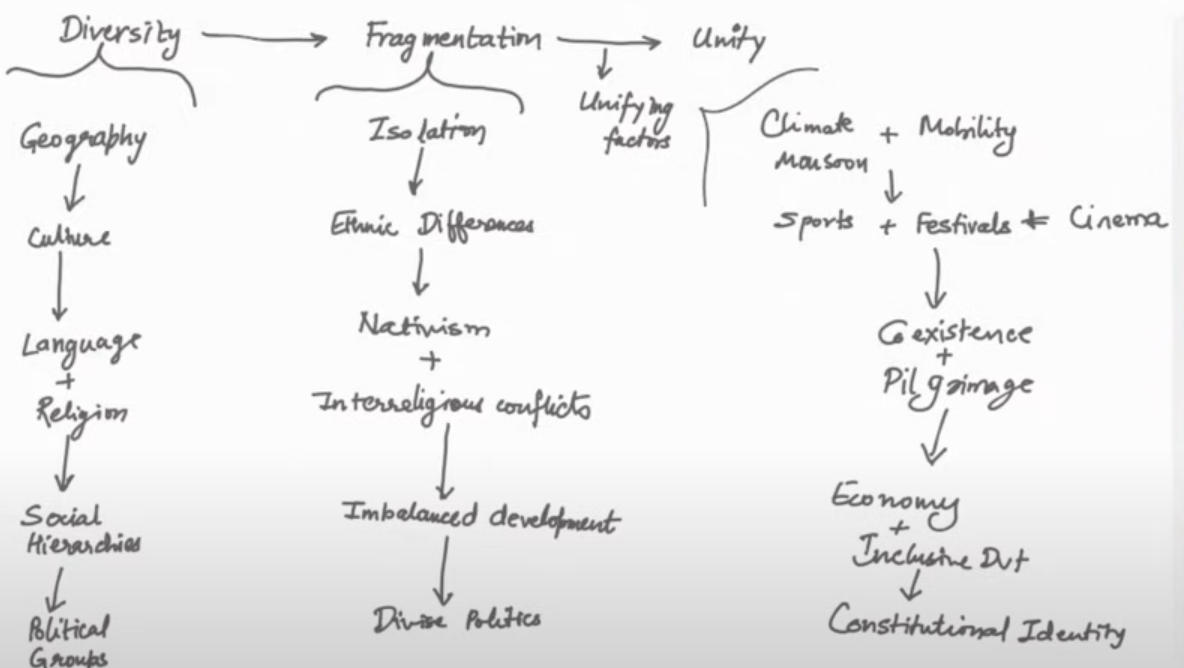 Diversity → Fragmentation → Unity
Geography
↓
Culture
↓
Language
+
Religion
↓
Social
Hierarchies
↓
Political
Groups
Isolation
↓
Ethnic Differences
↓
Nativism
+
Interreligious conflicts
↓
Imbalanced development
↓
Divise Politics
↓
Unifying
factors
Climate + Mobility
Monsoon
↓
Sports + Festivals + Cinema
↓
Coexistence
+
Pilgrimage
↓
Economy
+
Inclusive Dvt
↓
Constitutional Identity